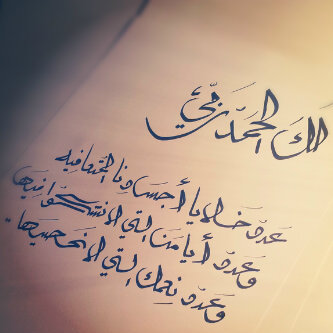 لكَ الحَمدُ ربِّي
عَددَ خَلايا أجسَادِنا المُتعافيه
وَعَددَ أيامَنا التي لا نشكو فيها
وَعَددَ نِعمك التي لا نحصيها..